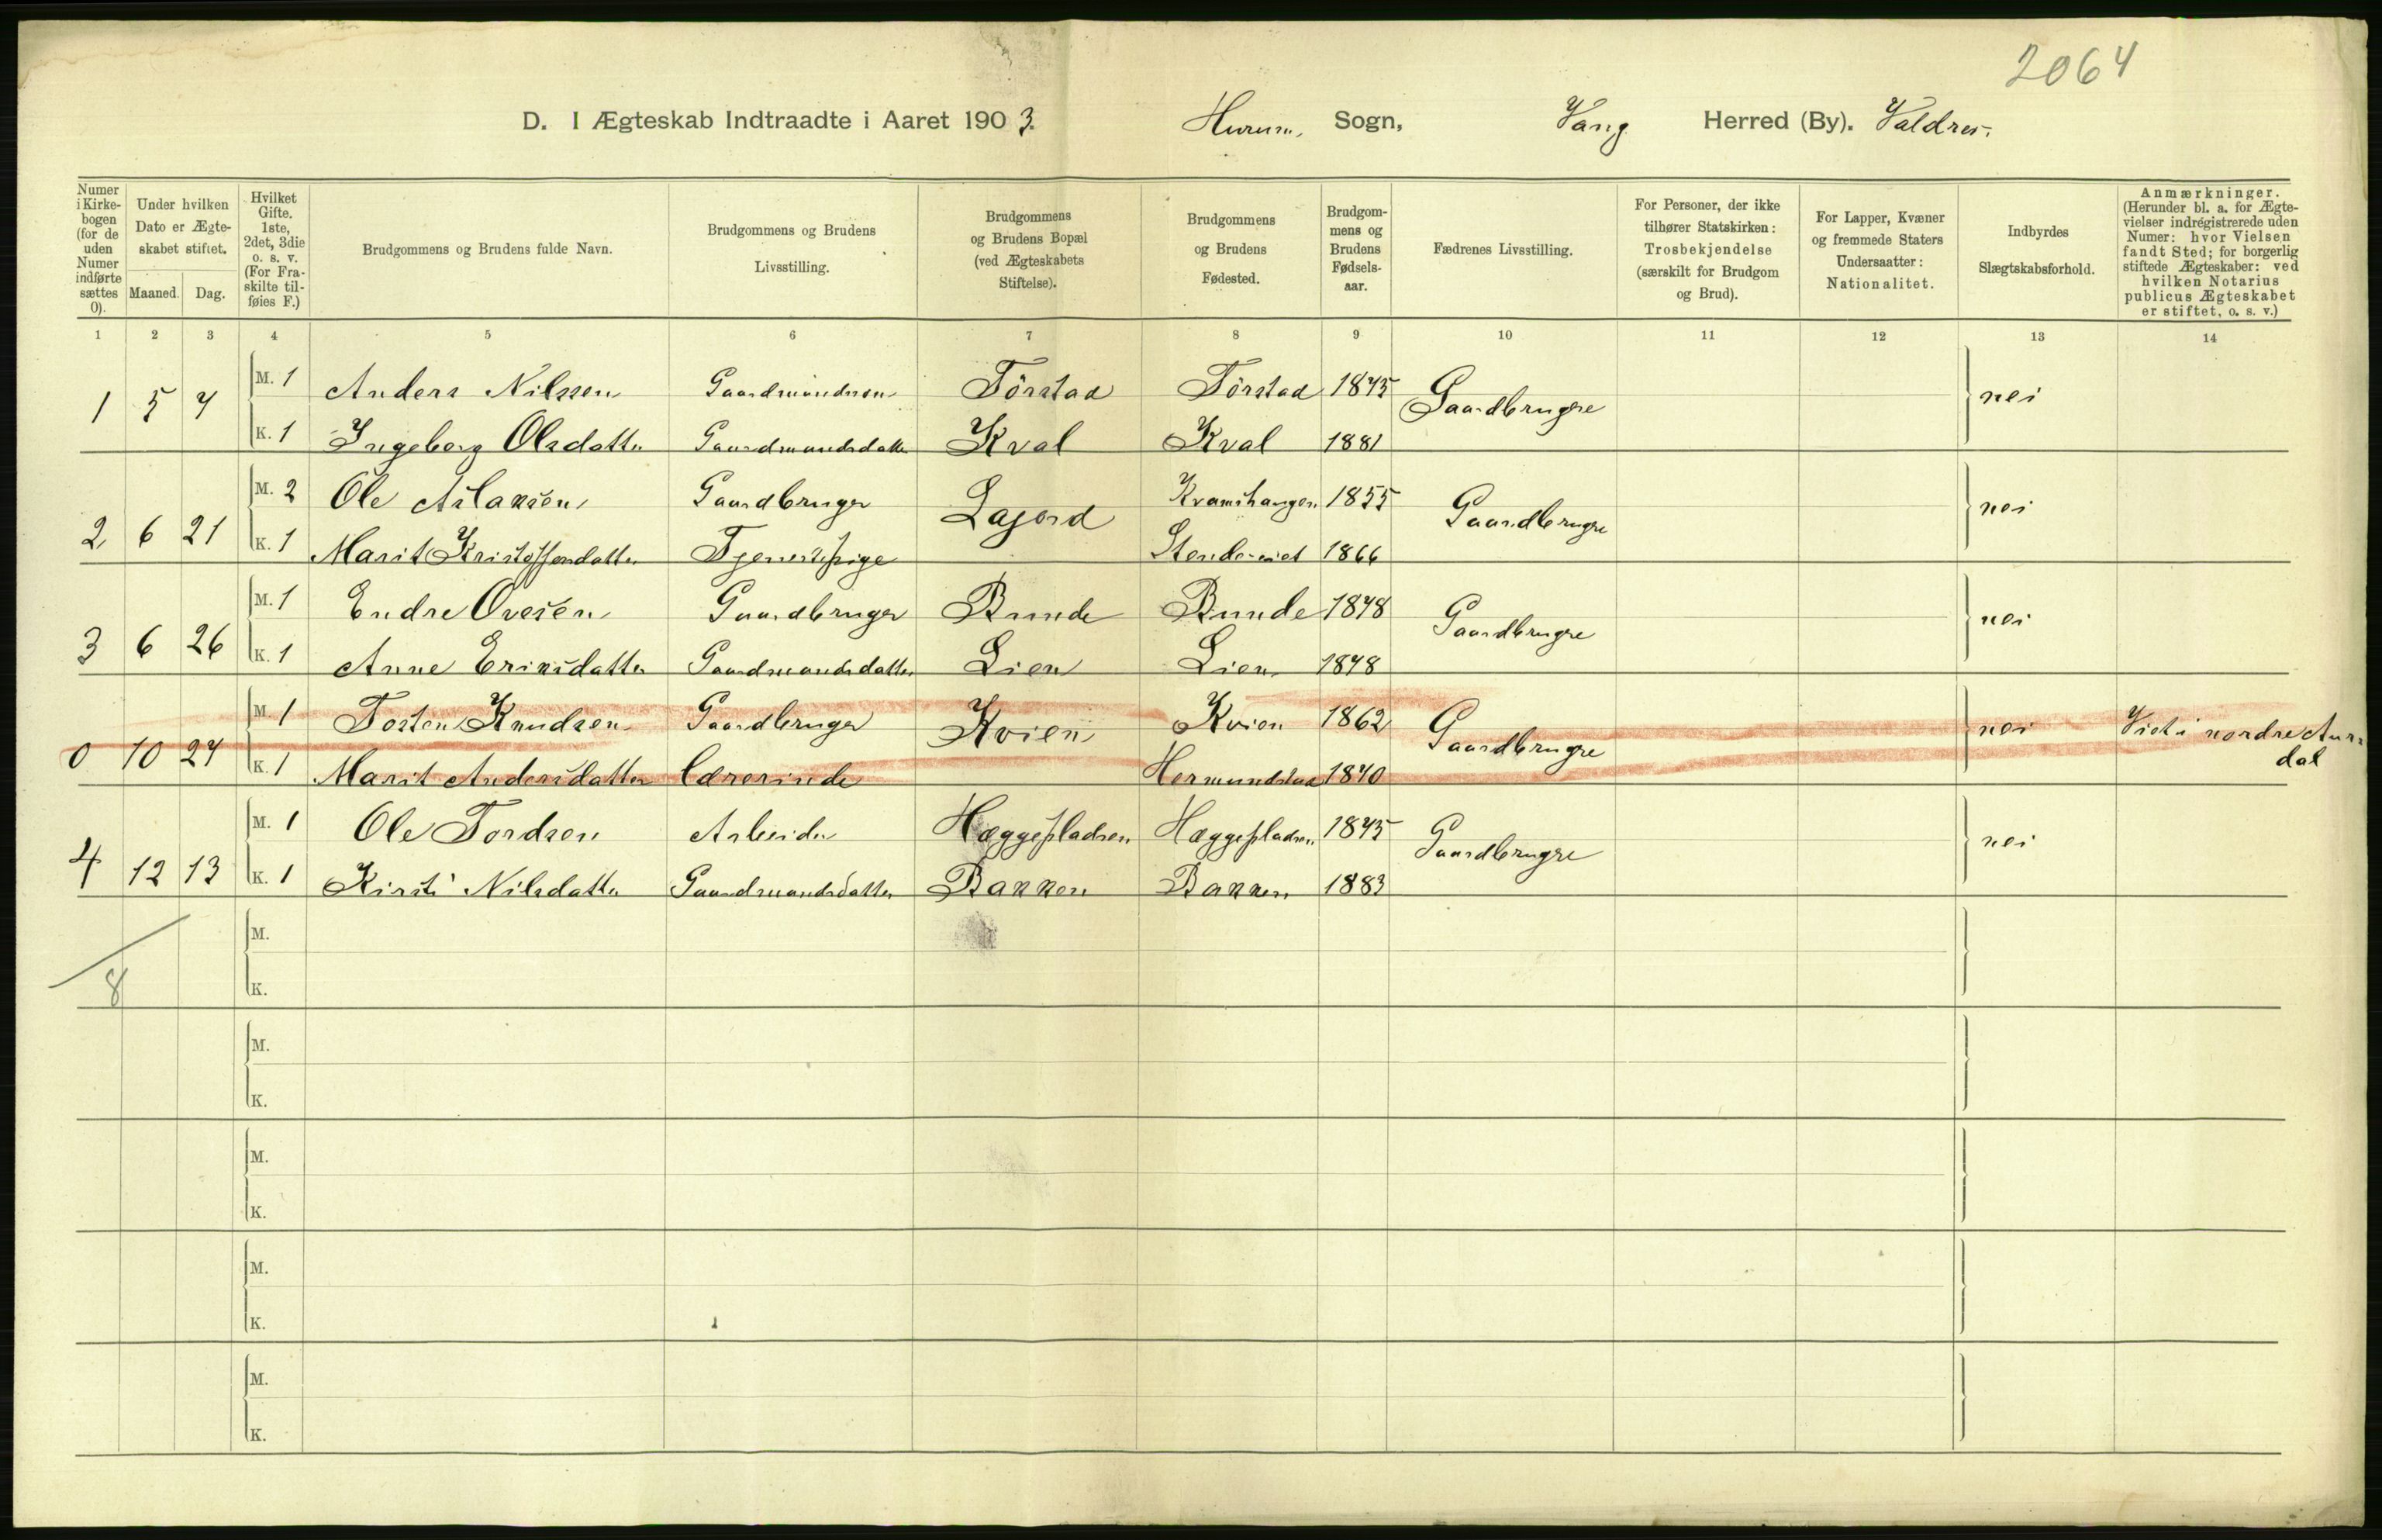 2064
D. I Ægteskab Indtraadte i Aaret 1903. Hurum, Sogn, Vang Herred (By). Valdres.
Numer i Kirkebogen (for de uden Numer indførte sættes 0).
Under hvilken Dato er Ægteskabet stiftet.
Maaned. Dag.
Hvilket Gifte. 1ste, 2det, 3die o. s. v. (For Fraskilte tilføies F.)
Brudgommens og Brudens fulde Navn.
Brudgommens og Brudens Livsstilling.
Brudgommens og Brudens Bopæl (ved Ægteskabets Stiftelse).
Brudgommens og Brudens Fødested.
Brudgommens og Brudens Fødselsaar.
Fædrenes Livsstilling.
For Personer, der ikke tilhører Statskirken: Trosbekjendelse (særskilt for Brudgom og Brud).
For Lapper, Kvæner og fremmede Staters Undersaatter: Nationalitet.
Indbyrdes Slægtskabsforhold.
Anmærkninger. (Herunder bl. a. for Ægtevielser indrégistrerede uden Numer: hvor Vielsen fandt Sted; for borgerlig stiftede Ægteskaber: ved hvilken Notarius publicus Ægteskabet er stiftet, o. s. v.)
1 2 3 4 5 6 7 8 9 10 11 12 13 14
1 5 7 M. 1 Anders Nilssen Gaardmandssøn Törstad Törstad 1875 Gaardbrugre nei
K. 1 Ingeborg Olsdatter Gaardmandsdatter Kval Kval 1881
2 6 21 M. 2 Ole Aslaksen Gaardbruger Lajord Kvamshaugen 1855 Gaardbrugre nei
K. 1 Marit Kristoffersdatter Tjenestepige 1866
3 6 26 M. 1 Endre Ovesen Gaardbruger Bunde Bunde 1878 Gaardbrugre nei
K. 1 Anne Eriksdatter Gaardmandsdatter Lien Lien 1878
0 10 24 M. 1 Tosten Knudsen Gaardbruger Kvien Kvien 1862 Gaardbrugre nei Viet i nordre Aur-
dal
K. 1 Marit Andersdatter Lærerinde Hermundstad 1870
4 12 13 M. 1 Ole Tordsen Arbeider Hæggepladsen Hæggepladsen 1875 Gaardbrugre nei
K. 1 Kirsti Nilsdatter Gaardmandsdatter Bakken Bakken 1883
M.
8 K.
M.
K.
M.
K.
M.
K.
M.
K.